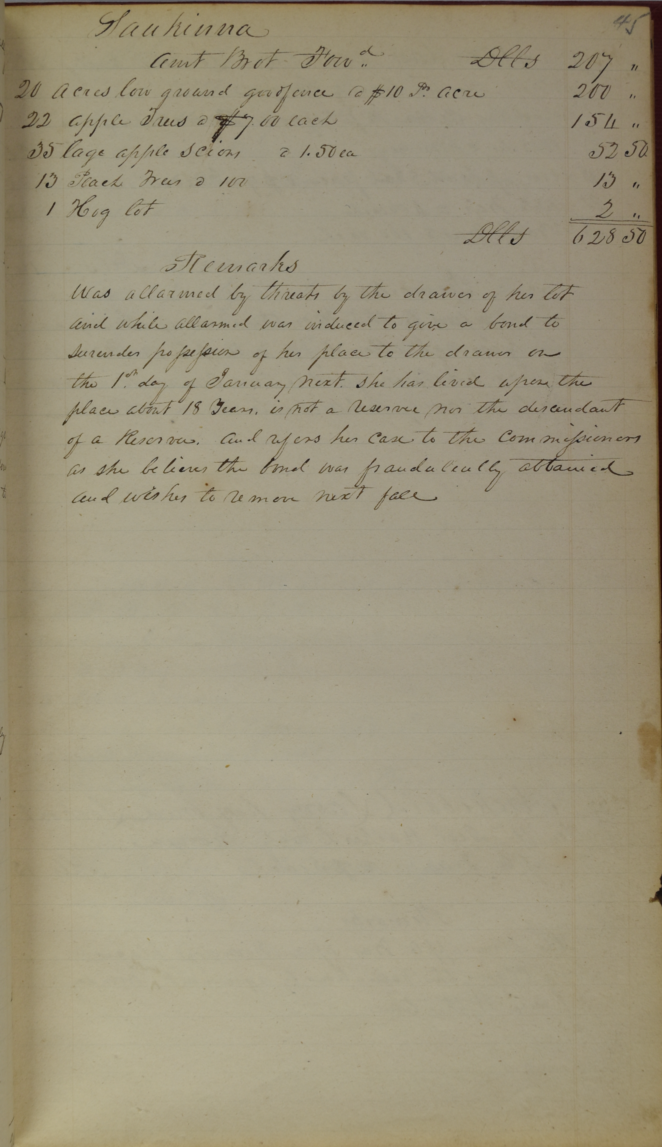 45
Saukinna
Amt Brot Forwd. Dlls 207 "
20 Acres low ground good fence @ $10 Pr acre 200 "
22 apple Trees @ $7 00 each 154 "
35 lage apple Scions @ 1.50 ea 52 50
13 Peach Trees @ 100 13 "
1 Hog lot 2 "
Dlls 628 50
Remarks
Was allarmed by threats by the drawer of her lot
and while allarmed was induced to give a bond to
Surender possession of her place to the drawer on
the 1st day of January next. She has lived upon the
place about 18 Years. is not a reservee nor the descendant
of a Reservee. and refers her case to the Commissioners
as she believes the bond was fraudulently obtained
and wishes to remove next fall